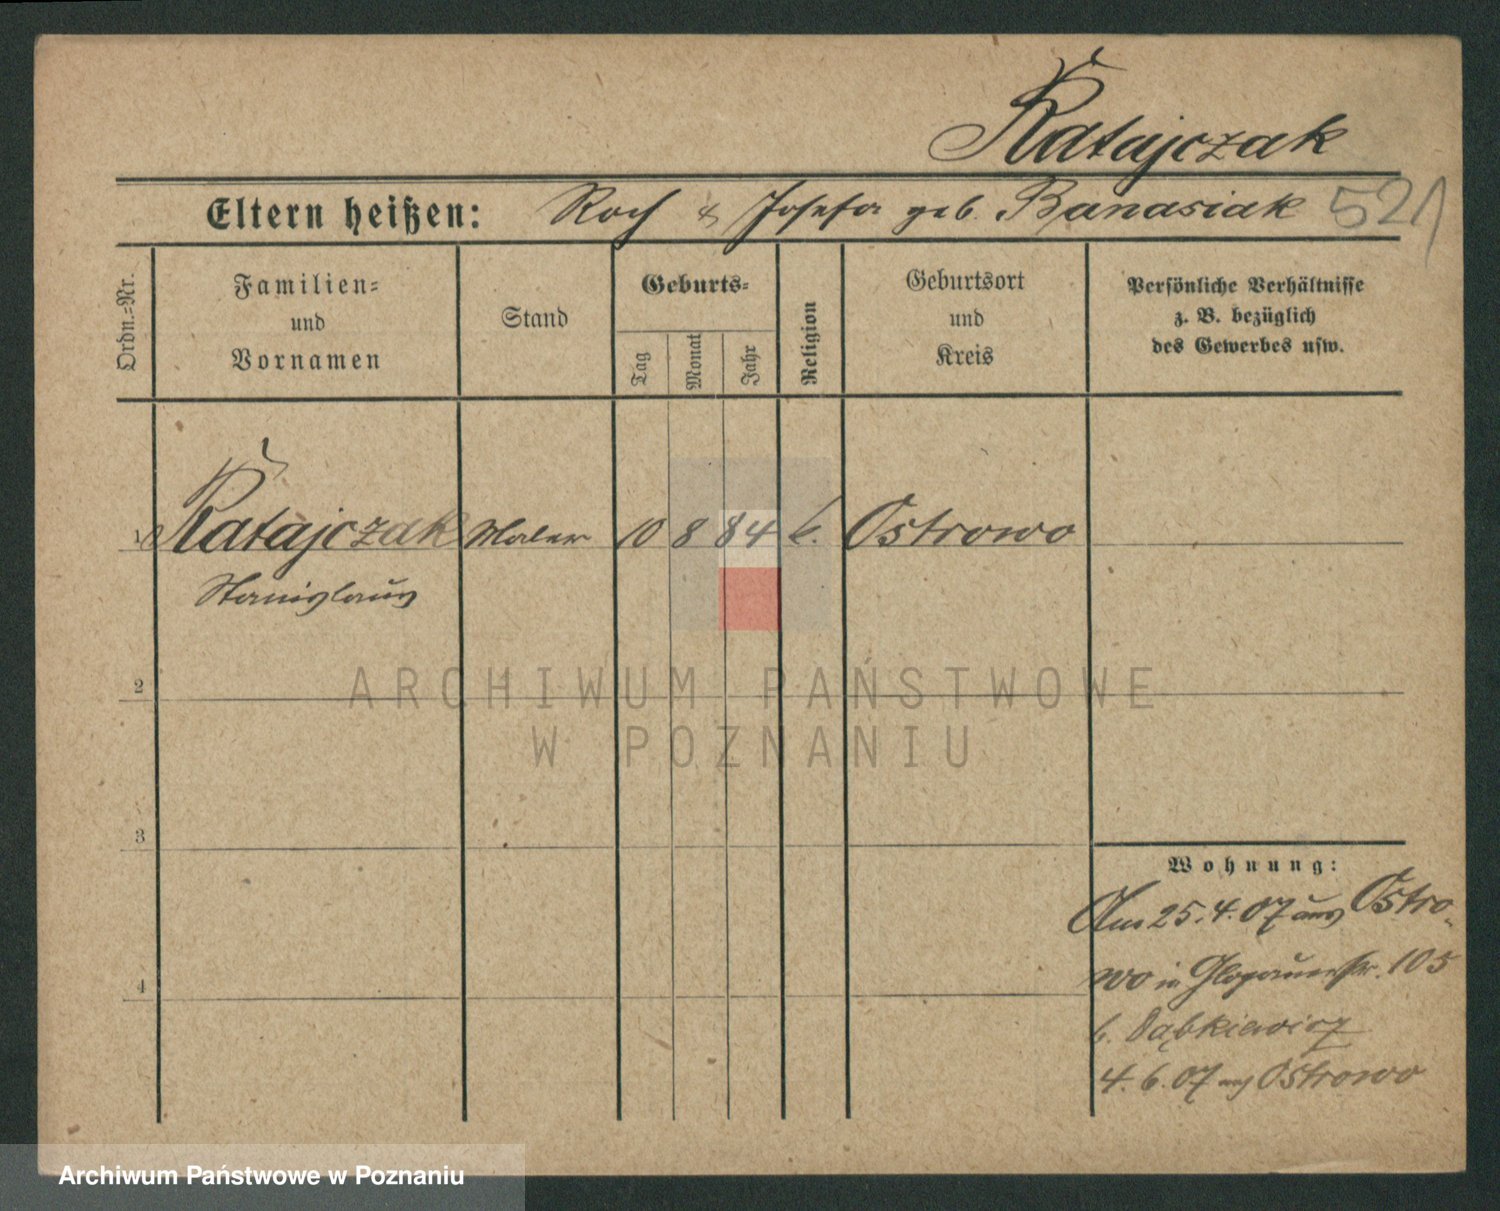 Ratajczak
Eltern heißen: Roch & Josefa geb. Banasiak 521
Ordn.=Nr.
Familien=
und
Vornamen
Stand
Geburts=
Tag
Monat
Jahr
Religion
Geburtsort
und
Kreis
Persönliche Verhältnisse
z. B. bezüglich
des Gewerbes usw.
1 Ratajczak Maler 10 8 84 k. Ostrowo
Stanislaus
2
3
4
Wohnung:
Am 25.4.07 aus Ostro-
wo in Glogauerstr. 105
b. Dąbkiewicz
4.6.07 nach Ostrowo
ARCHIWUM PAŃSTWOWE
W POZNANIU
Archiwum Państwowe w Poznaniu